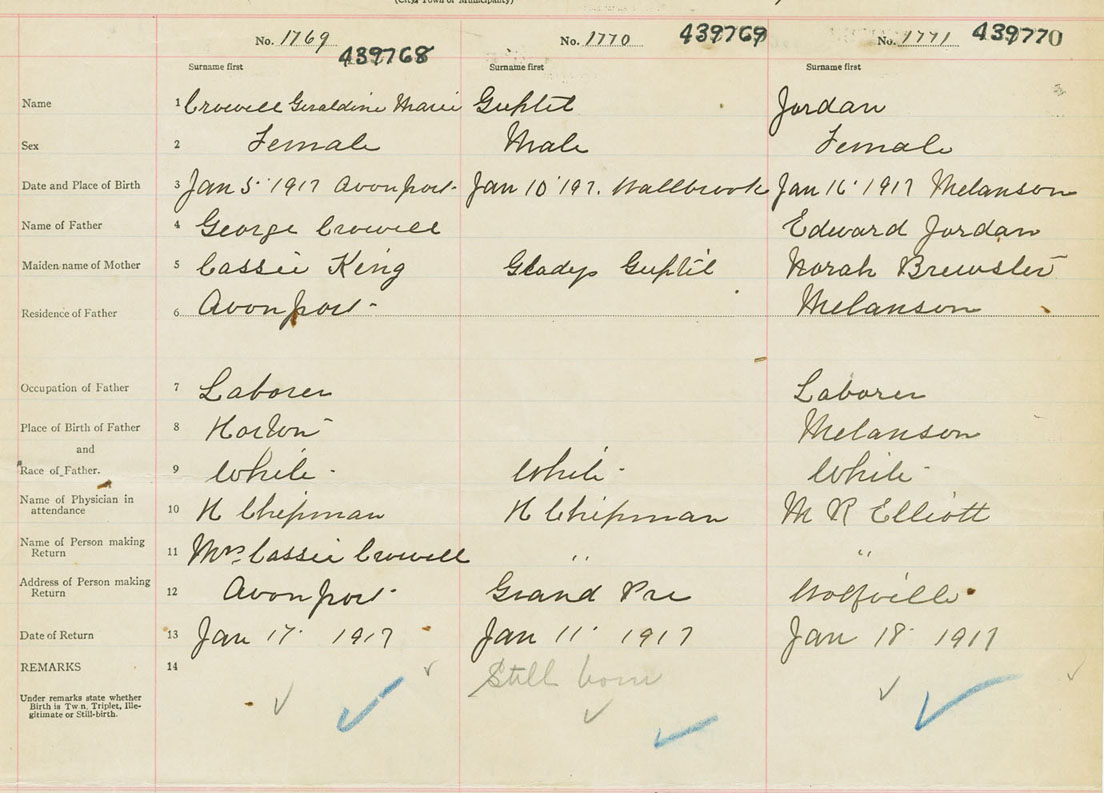 (City, Town or Municipality)
No. 1769 439768 No. 1770 439769 No. 1771 439770
Surname first Surname first Surname first
Name 1 Crowell Geraldine Marie Guptil Jordan
Sex 2 Female Male Female
Date and Place of Birth 3 Jan 5 1917 Avonport Jan 10 197. Wallbrook Jan 16 1917 Melanson
Name of Father 4 George Crowell Edward Jordan
Maiden name of Mother 5 Cassie King Gladys Guptil Norah Brewster
Residence of Father 6 Avonport Melanson
Occupation of Father 7 Laborer Laborer
Place of Birth of Father 8 Horton Melanson
and
Race of Father. 9 White White White
Name of Physician in
attendance 10 H Chipman H Chipman M R Elliott
Name of Person making
Return 11 Mrs Cassie Crowell " "
Address of Person making
Return 12 Avonport Grand Pre Wolfville
Date of Return 13 Jan 17 1917 Jan 11 1917 Jan 18 1917
REMARKS 14 Still born
Under remarks state whether
Birth is Twin, Triplet, Ille-
gitimate or Still-birth.